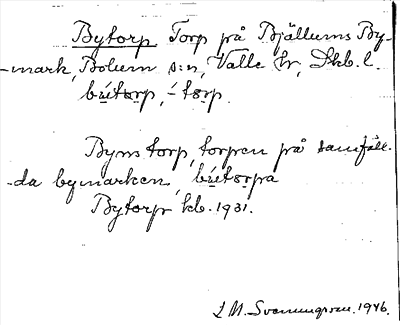 Bytorp Torp på Bjällums By-
-mark, Bolum s:n, Valle hr, Skb. l.
bẏ́tɷrp, -́tɷrp.
Byns torp, torpen på samfäll-
-da bymarken, bẏ́tɷrpa
Bytorp kb. 1931.
L M. Svenungsson. 1946.